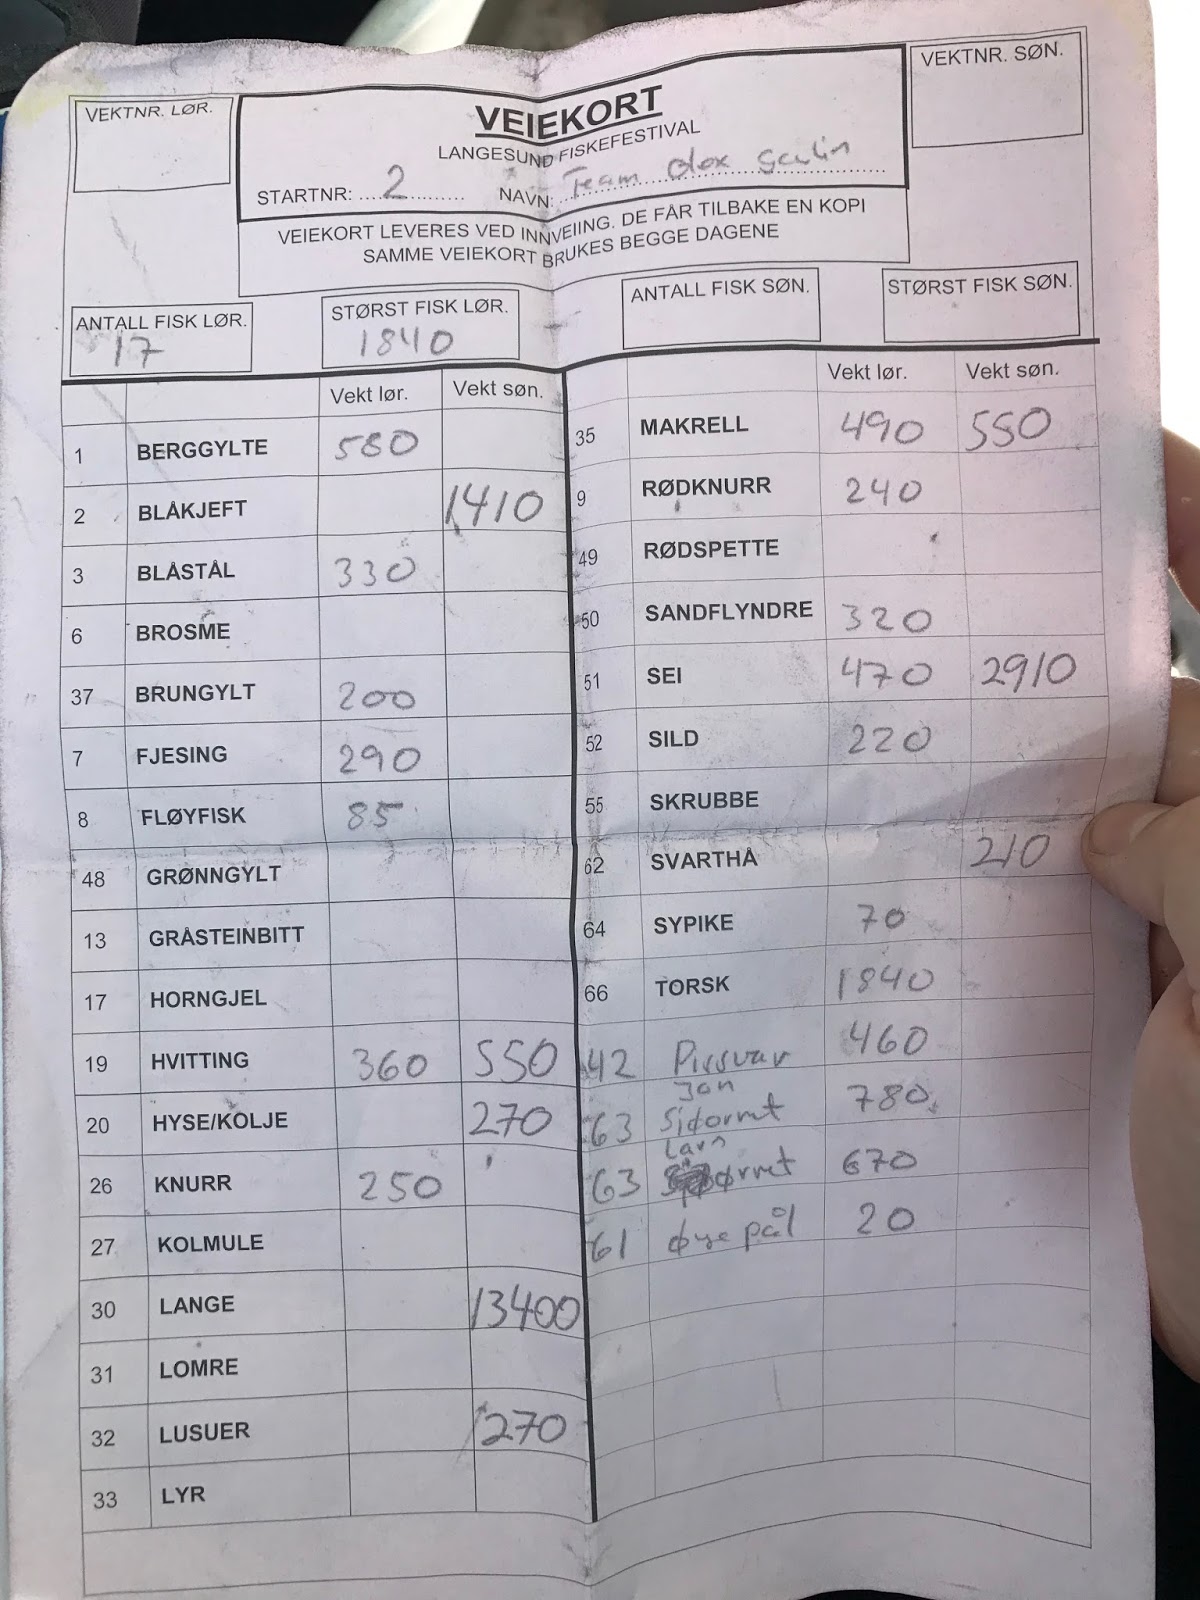 VEKTNR. LØR.
VEIEKORT
VEKTNR. SØN.
LANGESUND FISKEFESTIVAL
STARTNR: 2 NAVN: Team
VEIEKORT LEVERES VED INNVEIING. DE FÅR TILBAKE EN KOPI
SAMME VEIEKORT BRUKES BEGGE DAGENE
ANTALL FISK LØR. 17
STØRST FISK LØR. 1840
ANTALL FISK SØN.
STØRST FISK SØN.
Vekt lør. Vekt søn.
1 BERGGYLTE 580
2 BLÅKJEFT 1410
3 BLÅSTÅL 330
6 BROSME
37 BRUNGYLT 200
7 FJESING 290
8 FLØYFISK 85
48 GRØNNGYLT
13 GRÅSTEINBITT
17 HORNGJEL
19 HVITTING 360 550
20 HYSE/KOLJE 270
26 KNURR 250
27 KOLMULE
30 LANGE 13400
31 LOMRE
32 LUSUER 270
33 LYR
Vekt lør. Vekt søn.
35 MAKRELL 490 550
9 RØDKNURR 240
49 RØDSPETTE
50 SANDFLYNDRE 320
51 SEI 470 2910
52 SILD 220
55 SKRUBBE
62 SVARTHÅ 210
64 SYPIKE 70
66 TORSK 1840
42 Piggvar 460
Jan
63 Sjøorret 780
Lars
63 ørret 670
61 øyepål 20